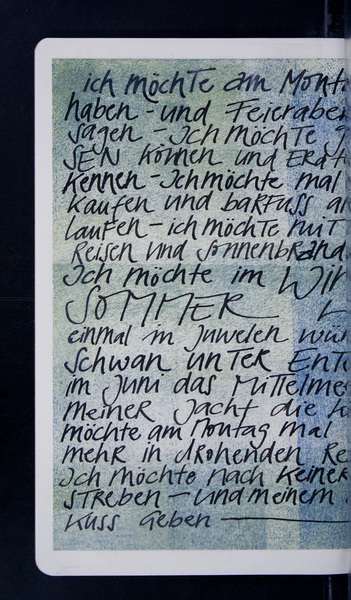 ich möchte am Mont
haben – und Feieraben
sagen – Ich möchte g
SEN können und ERdt
kennen – Ich möchte mal
kaufen und baRFuss a
laufen – ich möchte mit
Reisen und Sonnenbrand
Ich möchte im Win
SOMMER
einmal in Juwelen wü
Schwan unTER EntE
im Juni das MiTTelme
meiner Jacht die
möchte am Montag mal
mehR in drohenden Re
Ich möchte nach keineR
STReben – und meinem
Kuss Geben —